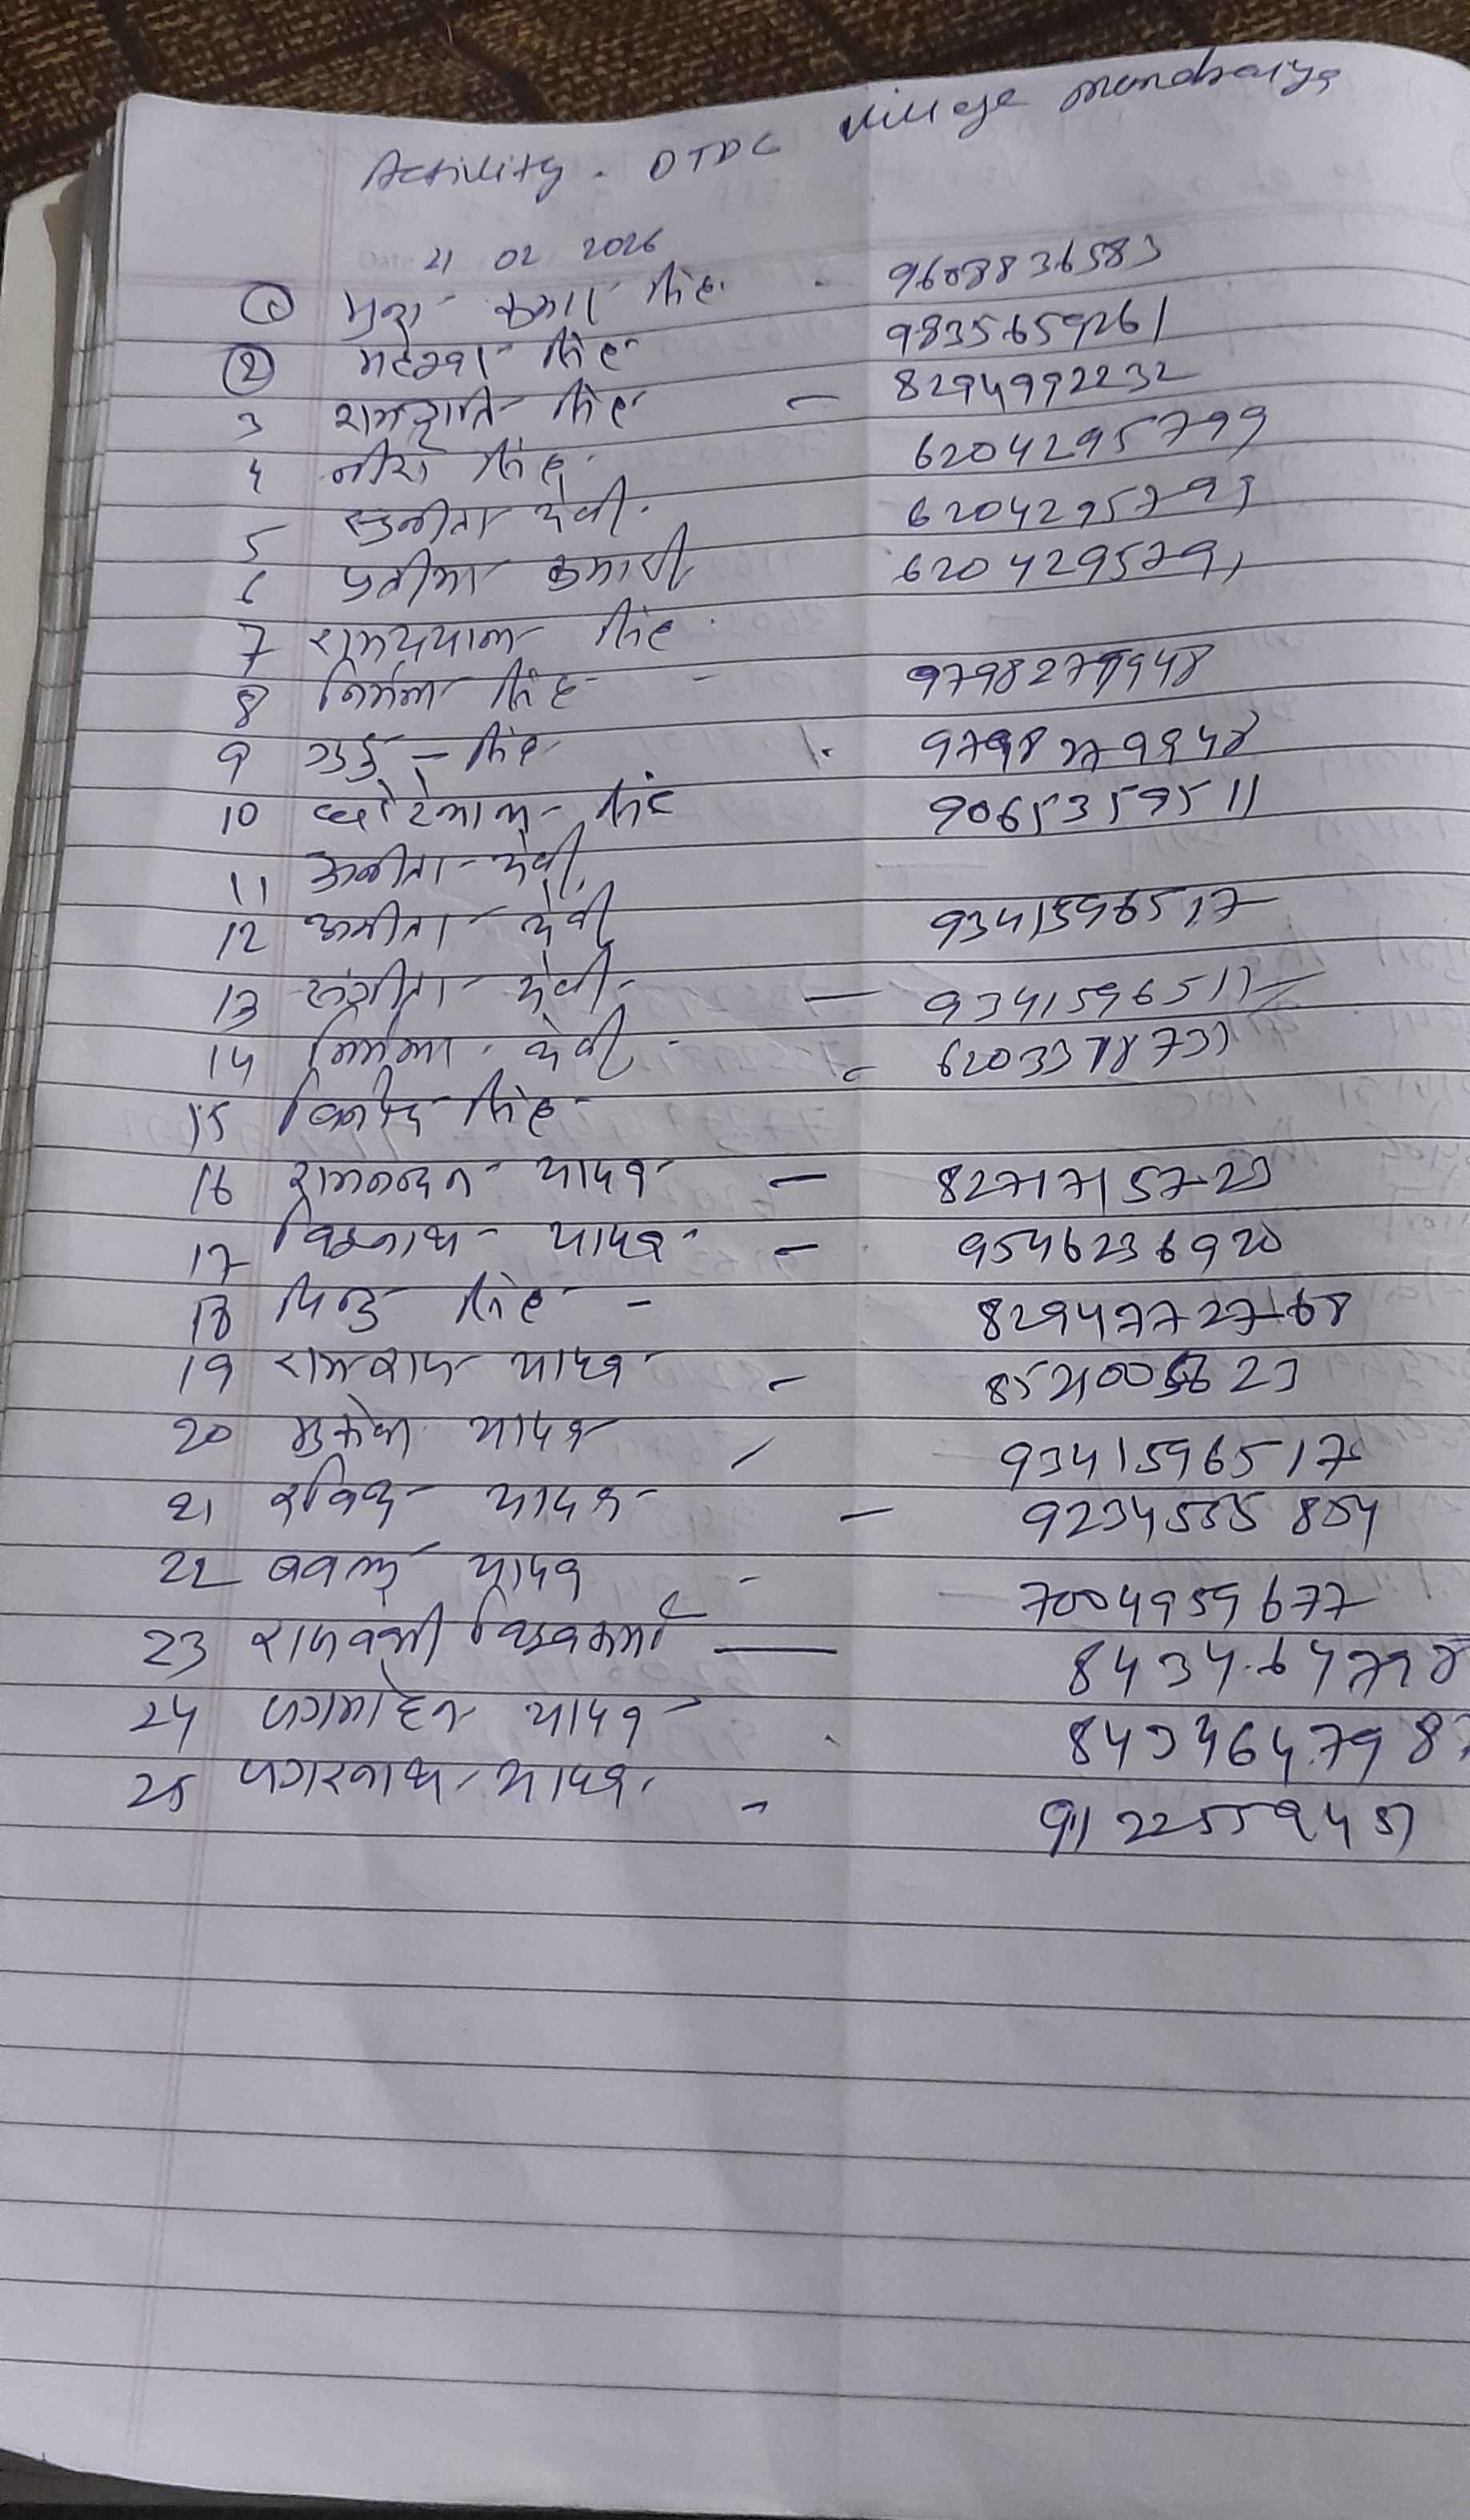 Activity. DTDC village mandraiya
21 02 2026
① कुमार सिंह 9608836583
② महेश्वर सिंह 9835659261
3 रामजाति सिंह – 8294992232
4 सिंह 6204295799
5 सुनीता देवी 6204295799
6 प्रतीमा कुमारी 620429579
7 रामदयाल सिंह
8 निर्मला सिंह – 9798279948
9 गुड्डु – सिंह 9798279948
10 छोटेलाल सिंह 9065359511
11 अनीता देवी
12 अनीता देवी 9341596517
13 संगीता देवी – 9341596517
14 निर्मला देवी –
15 विनोद सिंह
16 रामनन्दन यादव – 8271715723
17 विश्वनाथ यादव – 9546236920
18 पिन्टु सिंह – 8294772768
19 यादव –
20 मुकेश यादव 9341596517
21 रविन्द्र यादव – 9234555854
22 बबलु यादव – 7004959677
23 राजवंशी विश्वकर्मा — 843464798
24 जगमोहन यादव 843464798
25 जगरनाथ यादव –